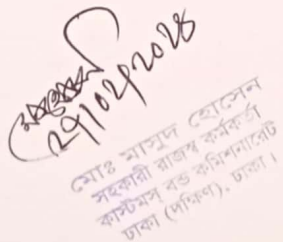 ২৭/০২/২০২৪
মোঃ মাসুদ হোসেন
সহকারী রাজস্ব কর্মকর্তা
কাস্টমস্ বন্ড কমিশনারেট
ঢাকা (দক্ষিণ), ঢাকা।